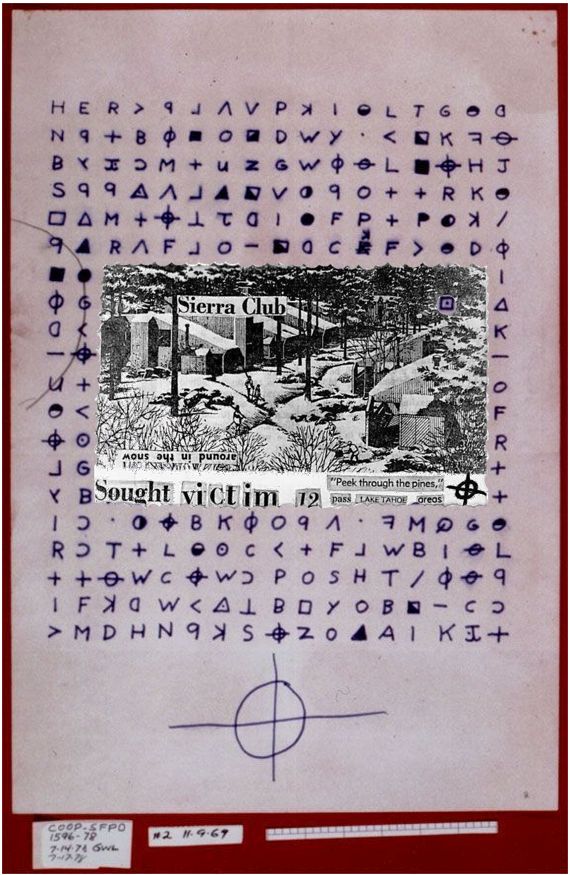 H E R > ꟼ ⅃ Λ V P ꓘ I ◒ L T G ◒ ᗡ
N ꟼ + B ϕ ■ O ◪ D W Y · < ◪ K ꟻ ⊖
B Y Ɪ Ɔ M + u Z G W ϕ ⊖ L ■ ⌖ H J
S ꟼ ꟼ △ Λ ⅃ ▲ ◪ V ◑ ꟼ O + + R K ◒
□ △ M + ⌖ ⊥ τ ᗡ I ● F P + P ◉ ꓘ /
ꟼ ▲ R Λ F ⅃ O – ◪ ᗡ C F > ◒ D ϕ
■ ● I
ϕ G △
ᗡ < K
– ⌖ –
u + O
◒ < F
⌖ ⊙ R
⅃ G +
Y B +
Sierra Club
around in the snow
"Peek through the pines,"
Sought victim 12
pass LAKE TAHOE areas
I Ɔ · ◑ ⌖ B K ϕ O ꟼ Λ · ꟻ M Q G ◒
R Ɔ T + L ◒ O C < + F ⅃ W B I ⊖ L
+ + ⊖ W C ⌖ W Ɔ P O S H T / ϕ ⊖ ꟼ
I F ꓘ ᗡ W < △ ⊥ B □ Y O B ◪ – C Ɔ
> M D H N ꟼ ꓘ S ⌖ Z O ▲ A I K Ɪ +
COOP-SFPD
1596-78
7-14-78 GWL
7-17-78
#2 11-9-69